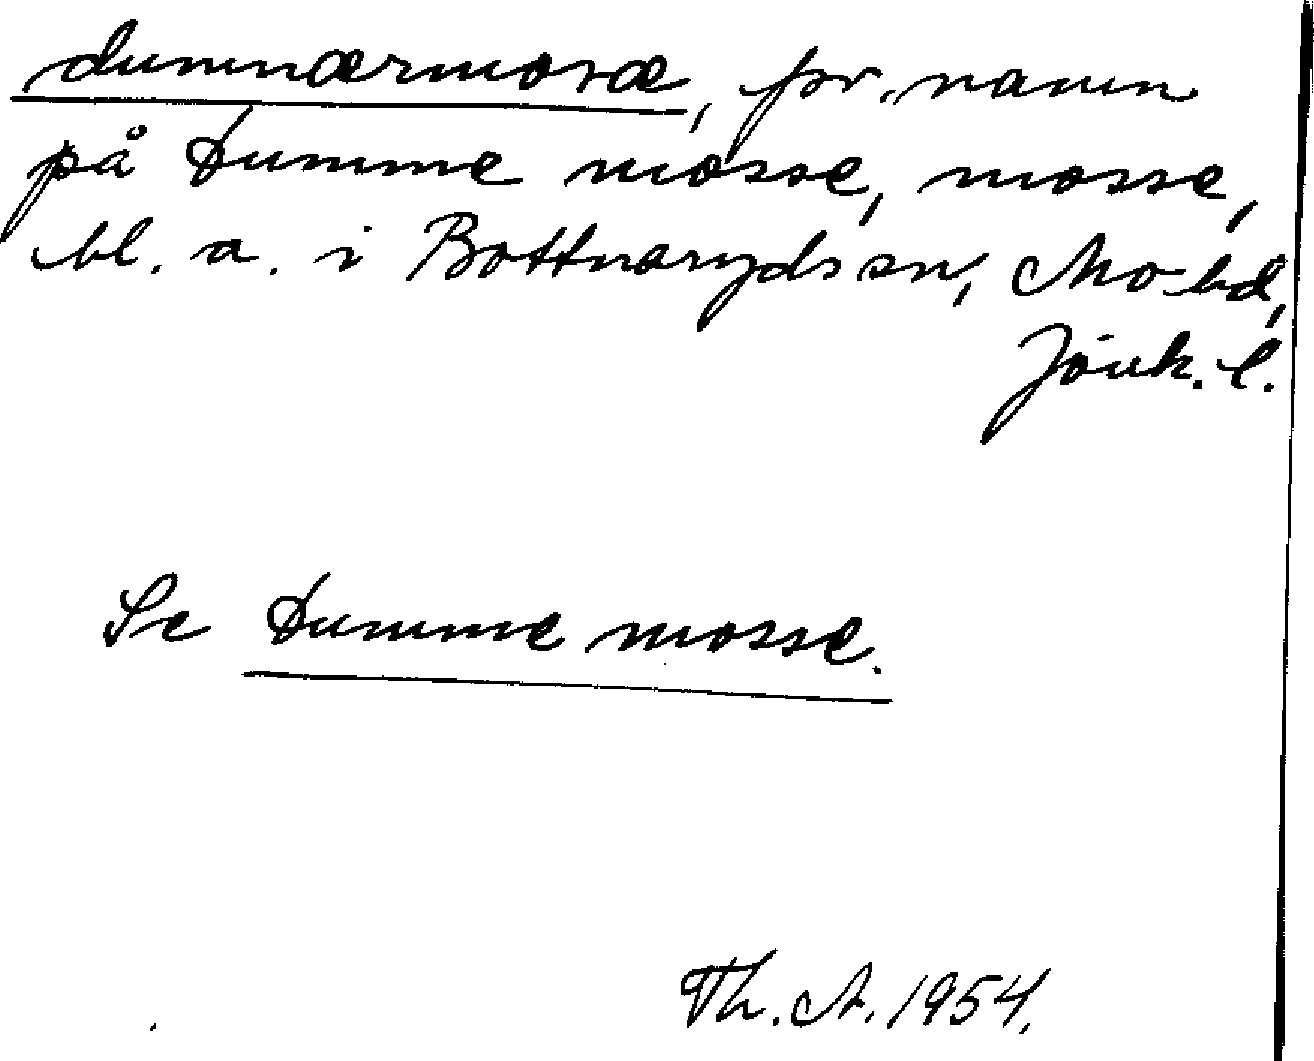 dummærmosæ, för. namn
på Dumme mosse, mosse,
bl. a. i Bottnaryds sn, Mo hd,
Jönk. l.
Se Dumme mosse.
Th. A. 1954.